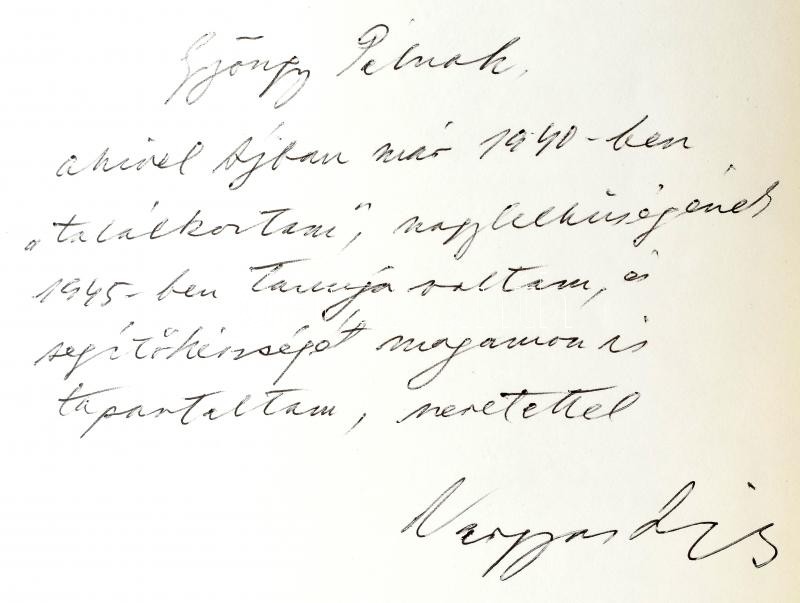 György Pálnak,
akivel Ajban már 1940-ben
„találkoztam”, nagylelkűségének
1945-ben tanuja voltam, és
segítőkészségét magamon is
tapasztaltam, szeretettel
Vargyas Lajos